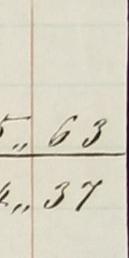 5,, 63
4,, 37